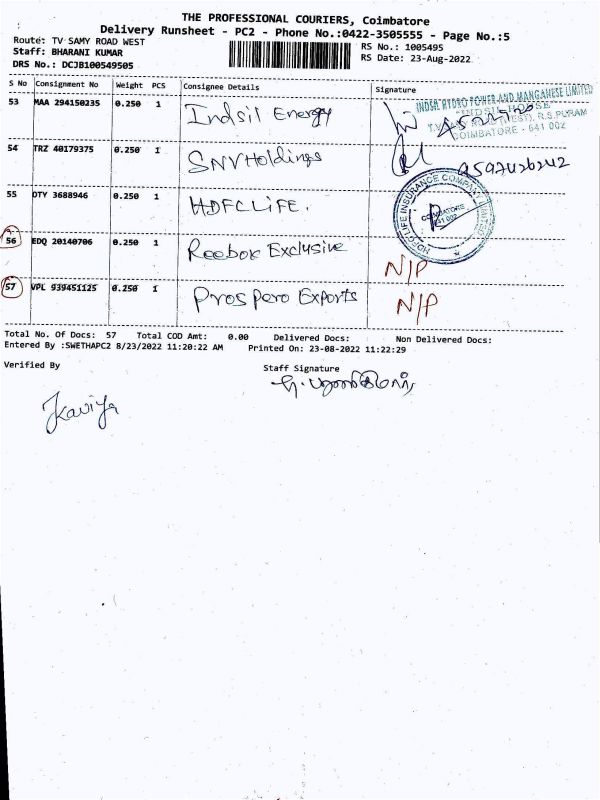 THE PROFESSIONAL COURIERS, Coimbatore
Delivery Runsheet - PC2 - Phone No.:0422-3505555 - Page No.:5
Route: TV SAMY ROAD WEST
Staff: BHARANI KUMAR
DRS No.: DCJB100549505
RS No.: 1005495
RS Date: 23-Aug-2022
S No Consignment No Weight PCS Consignee Details Signature
53 MAA 294150235 0.250 1 Indsil Energy
INDSIL HYDRO POWER AND MANGANESE LIMITED
"INDSIL HOUSE"
T.V. SAMY ROAD (WEST), R.S.PURAM
COIMBATORE - 641 002
54 TRZ 40179375 0.250 1 SNV Holdings
55 DTY 3688946 0.250 1 HDFC LIFE.
HDFC LIFE INSURANCE COMPANY LIMITED
COIMBATORE
641 002
56 EDQ 20140706 0.250 1 Reebok Exclusive N/P
57 VPL 939451125 0.250 1 Prospero Exports N/P
Total No. Of Docs: 57 Total COD Amt: 0.00 Delivered Docs: Non Delivered Docs:
Entered By :SWETHAPC2 8/23/2022 11:20:22 AM Printed On: 23-08-2022 11:22:29
Verified By Staff Signature
Kaviya